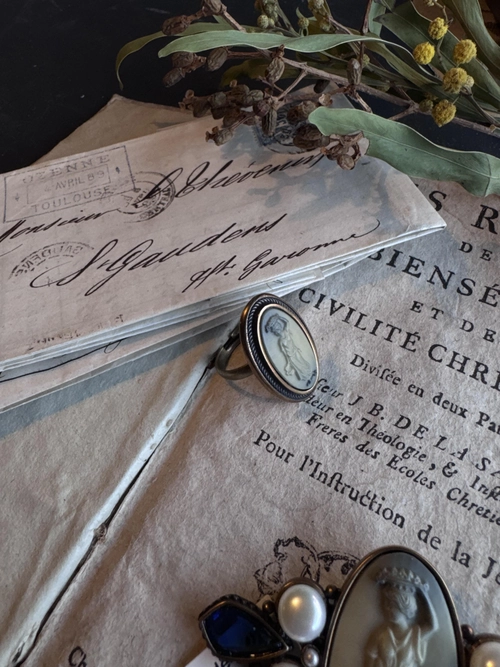 OZENNE
AVRIL 89
TOULOUSE
Monsieur
St Gaudens
Hte Garonne
S R
DE
BIENSÉ
ET DE
CIVILITÉ CHR
Diviſée en deux Par
J B. DE LA S
en Théologie, & Inſ
Freres des Ecoles Chreti
Pour l'Inſtruction de la J
Ch